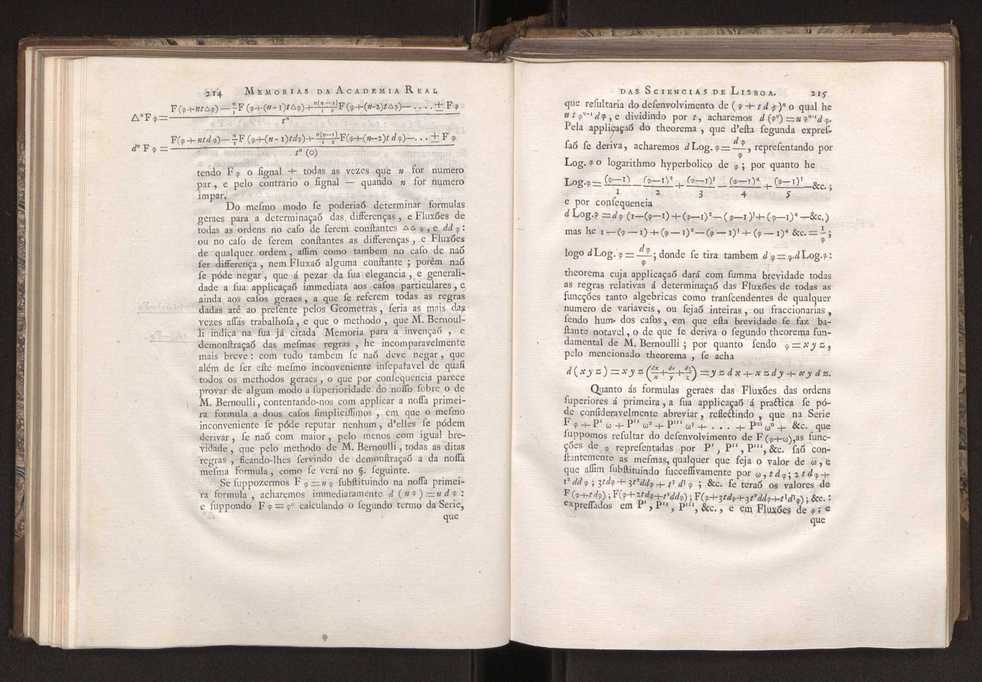 214 MEMORIAS DA ACADEMIA REAL
△ⁿ F φ = F(φ+nt△φ)—n/1 F(φ+(n-1)t△φ)+n(n-1)/1·2 F(φ+(n-2)t△φ)—....± F φ / tⁿ
dⁿ F φ = F(φ+ntdφ)—n/1 F(φ+(n-1)tdφ)+n(n-1)/1·2 F(φ+(n-2)t dφ)—...± F φ / tⁿ (0)
tendo F φ o ſignal + todas as vezes que n for numero
par, e pelo contrario o ſignal — quando n for numero
impar.
Do meſmo modo ſe poderiaõ determinar formulas
geraes para a determinaçaõ das differenças, e Fluxões de
todas as ordens no caſo de ſerem conſtantes △△φ, e ddφ:
ou no caſo de ſerem conſtantes as differenças, e Fluxões
de qualquer ordem, aſſim como tambem no caſo de naõ
ſer differença, nem Fluxaõ alguma conſtante; porém naõ
ſe póde negar, que á pezar da ſua elegancia, e generali-
dade a ſua applicaçaõ immediata aos caſos particulares, e
ainda aos caſos geraes, a que ſe referem todas as regras
dadas até ao preſente pelos Geometras, ſeria as mais das
vezes aſſás trabalhoſa, e que o methodo, que M. Bernoul-
li indica na ſua já citada Memoria para a invençaõ, e
demonſtraçaõ das meſmas regras, he incomparavelmente
mais breve: com tudo tambem ſe naõ deve negar, que
além de ſer eſte meſmo inconveniente inſeparavel de quaſi
todos os methodos geraes, o que por conſequencia parece
provar de algum modo a ſuperioridade do noſſo ſobre o de
M. Bernoulli, contentando-nos com applicar a noſſa primei-
ra formula a dous caſos ſimpliciſſimos, em que o meſmo
inconveniente ſe póde reputar nenhum, d'elles ſe pódem
derivar, ſe naõ com maior, pelo menos com igual bre-
vidade, que pelo methodo de M. Bernoulli, todas as ditas
regras, ficando-lhes ſervindo de demonſtraçaõ a da noſſa
meſma formula, como ſe verá no §. ſeguinte.
Se ſuppozermos F φ = n φ ſubſtituindo na noſſa primei-
ra formula, acharemos immediatamente d (n φ) = n d φ:
e ſuppondo F φ = φⁿ calculando o ſegundo termo da Serie,
que
DAS SCIENCIAS DE LISBOA. 215
que reſultaria do deſenvolvimento de (φ + t d φ)ⁿ o qual he
n t φⁿ⁻¹ d φ, e dividindo por t, acharemos d (φⁿ) = n φⁿ⁻¹ d φ.
Pela applicaçaõ do theorema, que d'eſta ſegunda expreſ-
ſaõ ſe deriva, acharemos d Log. φ = d φ / φ, repreſentando por
Log. φ o logarithmo hyperbolico de φ; por quanto he
Log. φ = (φ—1)/1 — (φ—1)²/2 + (φ—1)³/3 — (φ—1)⁴/4 + (φ—1)⁵/5 — &c.;
e por conſequencia
d Log. φ = d φ (1—(φ—1)+(φ—1)²—(φ—1)³+(φ—1)⁴—&c.)
mas he 1—(φ—1)+(φ—1)²—(φ—1)³+(φ—1)⁴ &c. = 1/φ;
logo d Log. φ = d φ / φ; donde ſe tira tambem d φ = φ. d Log. φ:
theorema cuja applicaçaõ dará com ſumma brevidade todas
as regras relativas á determinaçaõ das Fluxões de todas as
funcções tanto algebricas como tranſcendentes de qualquer
numero de variaveis, ou ſejaõ inteiras, ou fraccionarias,
ſendo hum dos caſos, em que eſta brevidade ſe faz ba-
ſtante notavel, o de que ſe deriva o ſegundo theorema fun-
damental de M. Bernoulli; por quanto ſendo φ = x y z,
pelo mencionado theorema, ſe acha
d (x y z) = x y z (dx/x + dy/y + dz/z) = y z d x + x z d y + x y d z.
Quanto ás formulas geraes das Fluxões das ordens
ſuperiores á primeira, a ſua applicaçaõ á practica ſe pó-
de conſideravelmente abreviar, reflectindo, que na Serie
F φ + Pᴵ ω + Pᴵᴵ ω² + Pᴵᴵᴵ ω³ + ... + Pⁿ ωⁿ + &c. que
ſuppomos reſultar do deſenvolvimento de F (φ+ω), as func-
ções de φ repreſentadas por Pᴵ, Pᴵᴵ, Pᴵᴵᴵ, &c. ſaõ con-
ſtantemente as meſmas, qualquer que ſeja o valor de ω, e
que aſſim ſubſtituindo ſucceſſivamente por ω, t d φ; 2 t d φ +
t² ddφ; 3tdφ + 3t²ddφ + t³ d³ φ; &c. ſe teraõ os valores de
F (φ+tdφ); F(φ+2tdφ+t²ddφ); F(φ+3tdφ+3t²ddφ+t³d³φ); &c.:
expreſſados em Pᴵ, Pᴵᴵ, Pᴵᴵᴵ, &c., e em Fluxões de φ; e
que